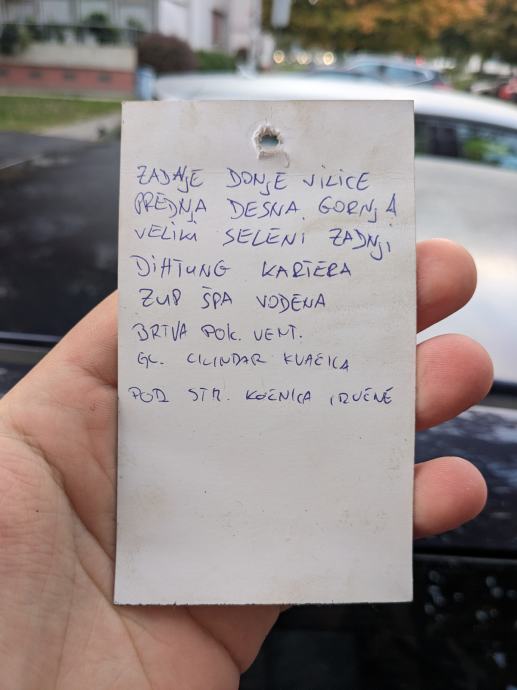 ZADNJE DONJE VILICE
PREDNJA DESNA GORNJA
VELIKI SELENI ZADNJI
DIHTUNG KARTERA
ZUP ŠPA VODENA
BRTVA POK. VENT.
GL. CILINDAR KVAČILA
POD STR. KOČNICA